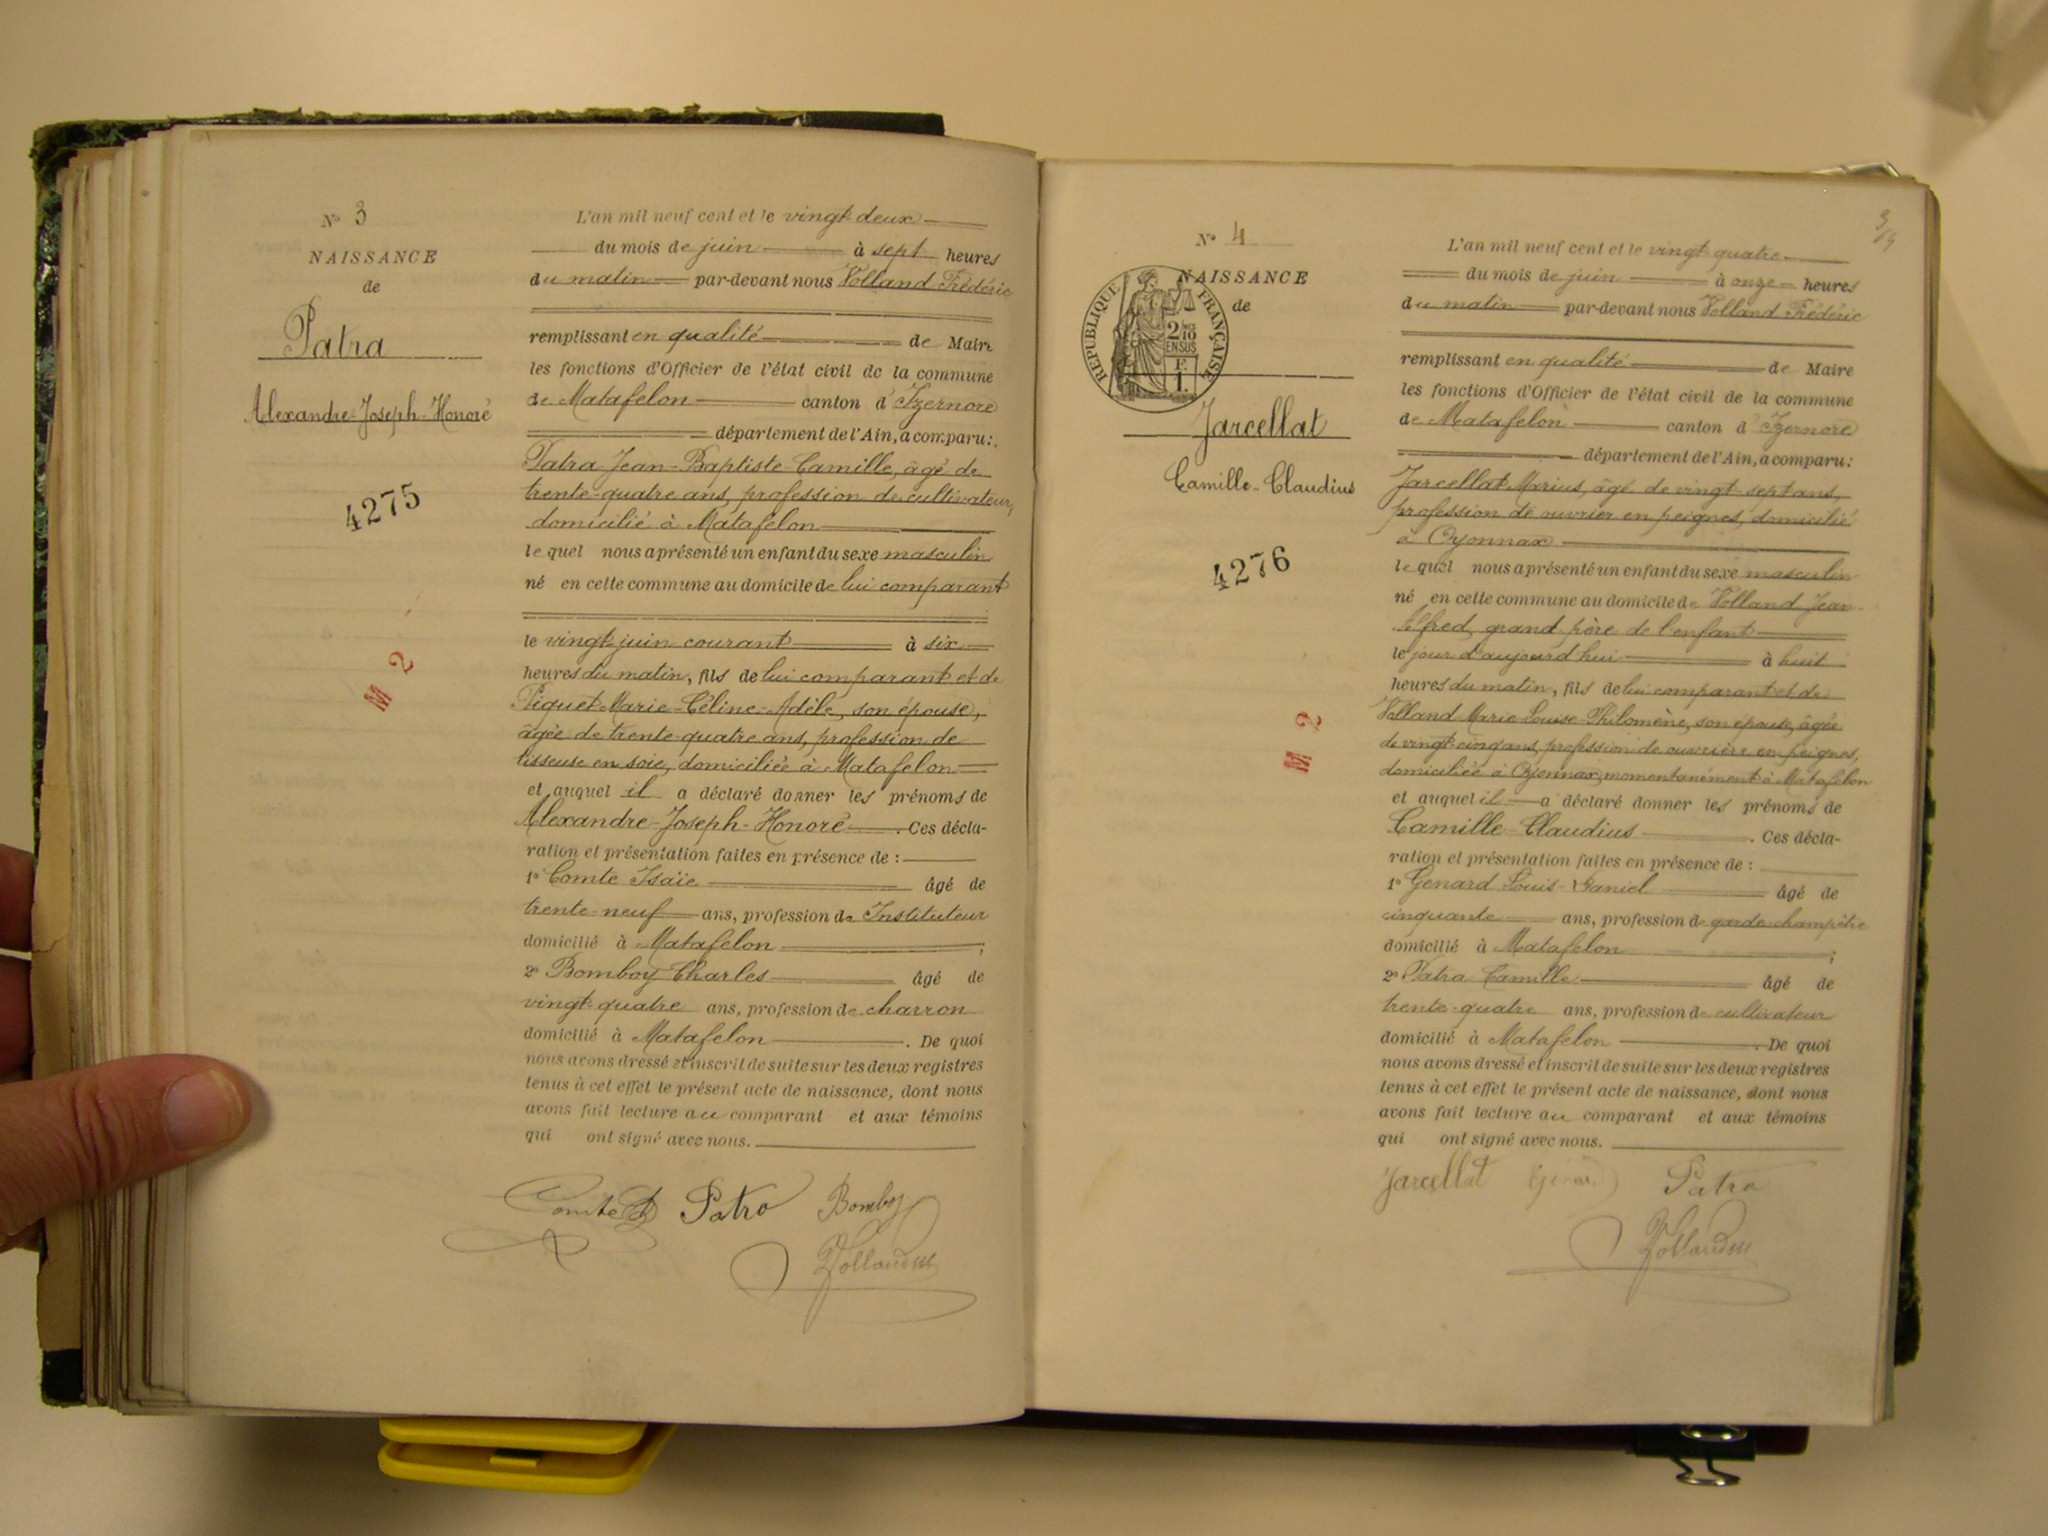 Nº 3
NAISSANCE
de
Patra
Alexandre-Joseph-Honoré
4275
M 2
L'an mil neuf cent et le vingt-deux
du mois de juin à sept heures
du matin par-devant nous Volland Frédéric
remplissant en qualité de Maire
les fonctions d'Officier de l'état civil de la commune
de Matafelon canton d'Izernore
département de l'Ain, a comparu:
Patra Jean-Baptiste Camille, âgé de
trente-quatre ans, profession de cultivateur,
domicilié à Matafelon
lequel nous a présenté un enfant du sexe masculin
né en cette commune au domicile de lui comparant
le vingt juin courant à six
heures du matin, fils de lui comparant et de
Piquet Marie-Céline-Adèle, son épouse,
âgée de trente-quatre ans, profession de
tisseuse en soie, domiciliée à Matafelon
et auquel il a déclaré donner les prénoms de
Alexandre-Joseph-Honoré. Ces décla-
ration et présentation faites en présence de :
1º Comte Isaïe âgé de
trente-neuf ans, profession de Instituteur
domicilié à Matafelon ;
2º Bomboy Charles âgé de
vingt-quatre ans, profession de charron
domicilié à Matafelon. De quoi
nous avons dressé et inscrit de suite sur les deux registres
tenus à cet effet le présent acte de naissance, dont nous
avons fait lecture au comparant et aux témoins
qui ont signé avec nous.
Comte Patra Bomboy
Volland
3/4
Nº 4
NAISSANCE
de
RÉPUBLIQUE FRANÇAISE
2/10 EN SUS
F. 1.
Jarcellat
Camille-Claudius
4276
M 2
L'an mil neuf cent et le vingt-quatre
du mois de juin à onze heures
du matin par-devant nous Volland Frédéric
remplissant en qualité de Maire
les fonctions d'Officier de l'état civil de la commune
de Matafelon canton d'Izernore
département de l'Ain, a comparu:
Jarcellat Marius, âgé de vingt-sept ans,
profession de ouvrier en peignes, domicilié
à Oyonnax
lequel nous a présenté un enfant du sexe masculin
né en cette commune au domicile de Volland Jean
Alfred, grand-père de l'enfant
le jour d'aujourd'hui à huit
heures du matin, fils de lui comparant et de
Volland Marie-Louise-Philomène, son épouse, âgée
de vingt-cinq ans, profession de ouvrière en peignes,
domiciliée à Oyonnax, momentanément à Matafelon
et auquel il a déclaré donner les prénoms de
Camille-Claudius. Ces décla-
ration et présentation faites en présence de :
1º Genard Louis-Daniel âgé de
cinquante ans, profession de garde-champêtre
domicilié à Matafelon ;
2º Patra Camille âgé de
trente-quatre ans, profession de cultivateur
domicilié à Matafelon. De quoi
nous avons dressé et inscrit de suite sur les deux registres
tenus à cet effet le présent acte de naissance, dont nous
avons fait lecture au comparant et aux témoins
qui ont signé avec nous.
Jarcellat Patra
Volland